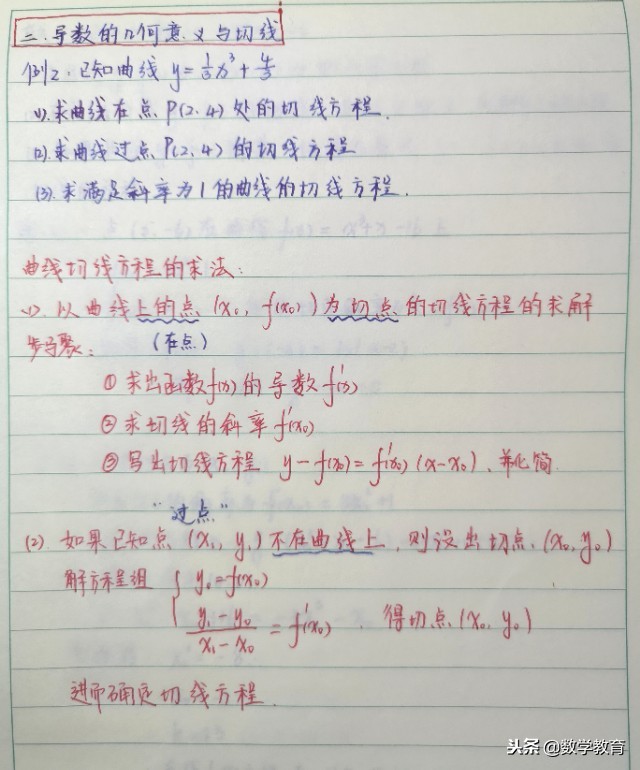 二.导数的几何意义与切线
例2.已知曲线 y=1/3x³+4/3
(1).求曲线在点P(2,4)处的切线方程.
(2).求曲线过点P(2,4)的切线方程
(3).求满足斜率为1的曲线的切线方程.
曲线切线方程的求法:
(1).以曲线上的点(x₀, f(x₀))为切点的切线方程的求解
步骤:
(在点)
①求出函数f(x)的导数f'(x)
②求切线的斜率f'(x₀)
③写出切线方程 y-f(x₀)=f'(x₀)(x-x₀),并化简.
“过点”
(2).如果已知点(x₁, y₁)不在曲线上,则设出切点(x₀, y₀)
解方程组 { y₀=f(x₀)
(y₁-y₀)/(x₁-x₀)=f'(x₀) . 得切点(x₀, y₀)
进而确定切线方程.
头条@数学教育